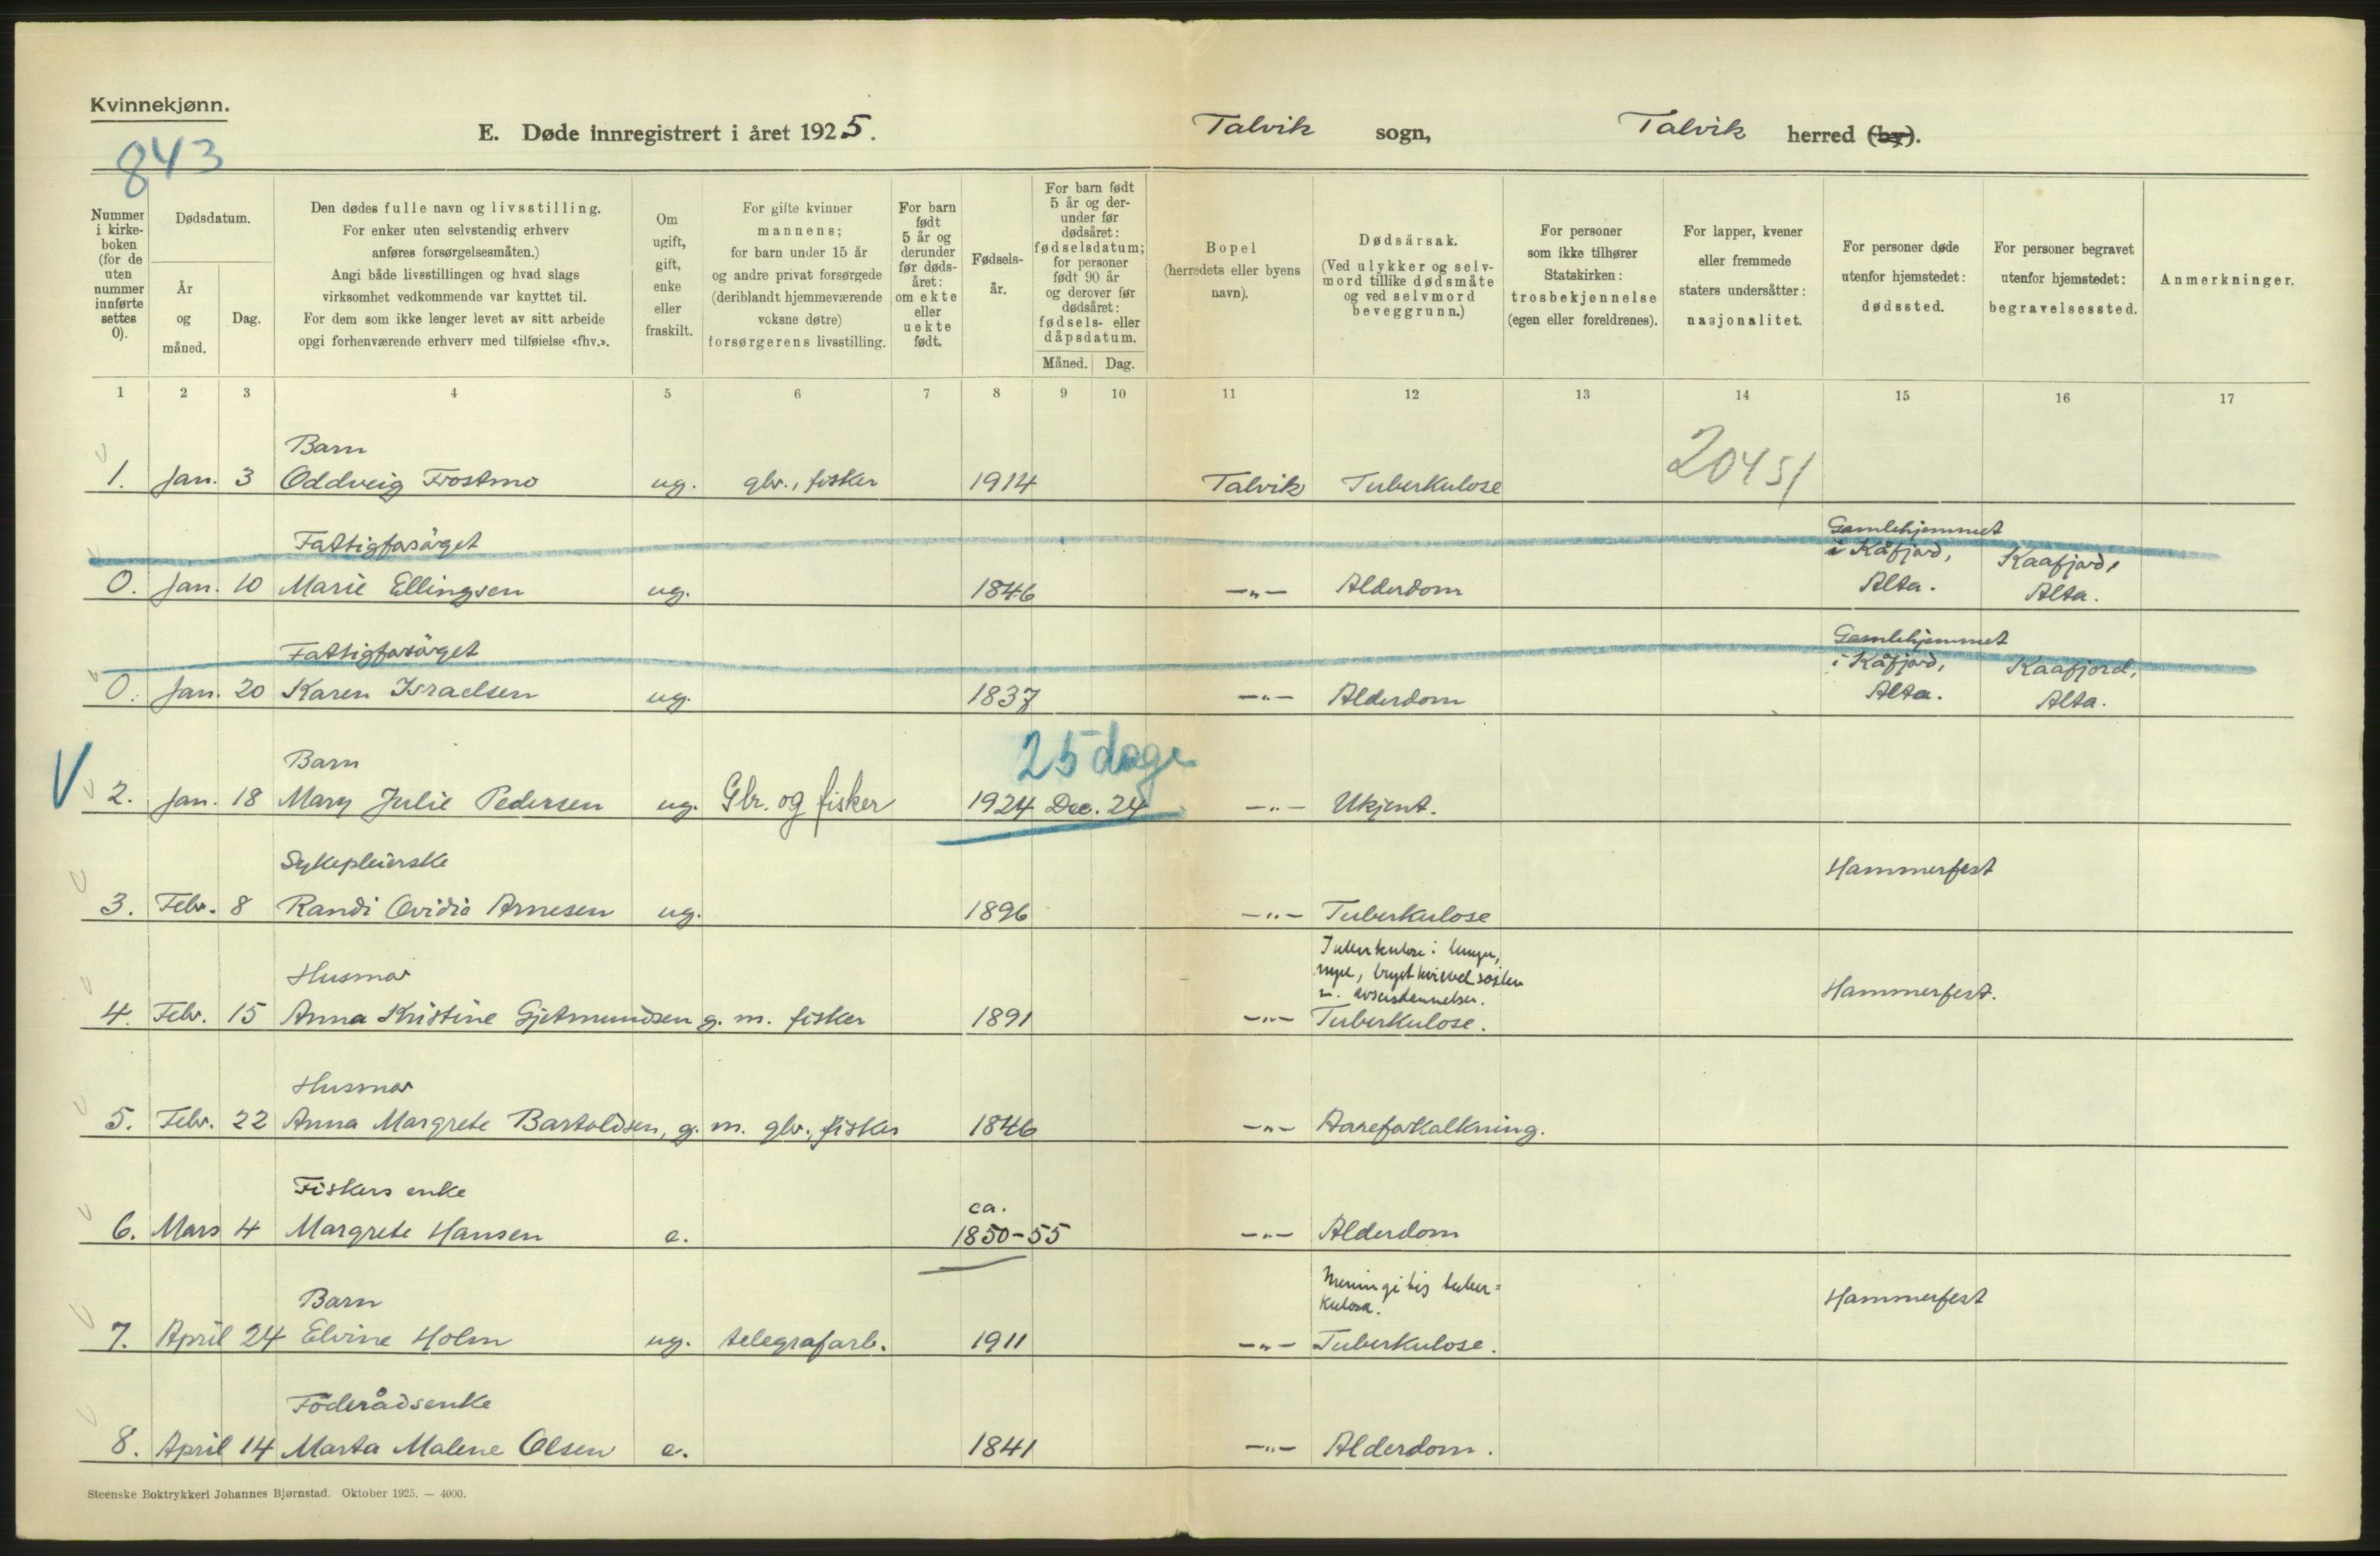 Kvinnekjønn.
E. Døde innregistrert i året 1925.
Talvik sogn, Talvik herred (by).
843
Nummer i kirke-boken (for de uten nummer innførte settes 0).
Dødsdatum.
År og måned.
Dag.
Den dødes fulle navn og livsstilling.
For enker uten selvstendig erhverv
anføres forsørgelsesmåten.)
Angi både livsstillingen og hvad slags
virksomhet vedkommende var knyttet til.
For dem som ikke lenger levet av sitt arbeide
opgi forhenværende erhverv med tilføielse «fhv.».
Om ugift, gift, enke eller fraskilt.
For gifte kvinner
mannens;
for barn under 15 år
og andre privat forsørgede
(deriblandt hjemmeværende
voksne døtre)
forsørgerens livsstilling.
For barn født 5 år og derunder før døds-året: om ekte eller uekte født.
Fødsels-år.
For barn født
5 år og der-
under før
dødsåret:
fødselsdatum;
for personer
født 90 år
og derover før
dødsåret:
fødsels- eller
dåpsdatum.
Måned. Dag.
Bopel
(herredets eller byens
navn).
Dødsårsak.
(Ved ulykker og selv-
mord tillike dødsmåte
og ved selvmord
beveggrunn.)
For personer
som ikke tilhører
Statskirken:
trosbekjennelse
(egen eller foreldrenes).
For lapper, kvener
eller fremmede
staters undersåtter:
nasjonalitet.
For personer døde
utenfor hjemstedet:
dødssted.
For personer begravet
utenfor hjemstedet:
begravelsessted.
Anmerkninger.
1 2 3 4 5 6 7 8 9 10 11 12 13 14 15 16 17
Barn
20451
1. Jan. 3 Oddveig Frostmo ug. gbr., fisker 1914 Talvik Tuberkulose
Fattigforsörget
Gamlehjemmet
i Kåfjord, Kaafjord,
0. Jan. 10 Marie Ellingsen ug. 1846 -„- Alderdom Alta. Alta.
Fattigforsörget
Gamlehjemmet
i Kåfjord, Kaafjord,
0. Jan. 20 Karen Israelsen ug. 1837 -„- Alderdom Alta. Alta.
Barn 25 dage
V 2. Jan. 18 Mary Julie Pedersen ug. Gbr. og fisker 1924 Dec. 24 -„- Ukjent.
Sykepleierske Hammerfest
3. Febr. 8 Randi Ovidia Arnesen ug. 1896 -„- Tuberkulose
Tuberkulose i lunger,
Husmor
Hammerfest.
4. Febr. 15 Anna Kristine Gjetmundsen g. m. fisker 1891 -„- Tuberkulose.
Husmor
5. Febr. 22 Anna Margrete Bartoldsen, g. m. gbr., fisker 1846 -„- Aareforkalkning.
Fiskers enke
ca.
6. Mars 4 Margrete Hansen e. 1850-55 -„- Alderdom
Meningitis tuber=
Barn kulosa. Hammerfest
7. April 24 Elvine Holm ug. telegrafarb. 1911 -„- Tuberkulose.
Föderådsenke
8. April 14 Marta Malene Olsen e. 1841 -„- Alderdom.
Steenske Boktrykkeri Johannes Bjørnstad. Oktober 1925. — 4000.